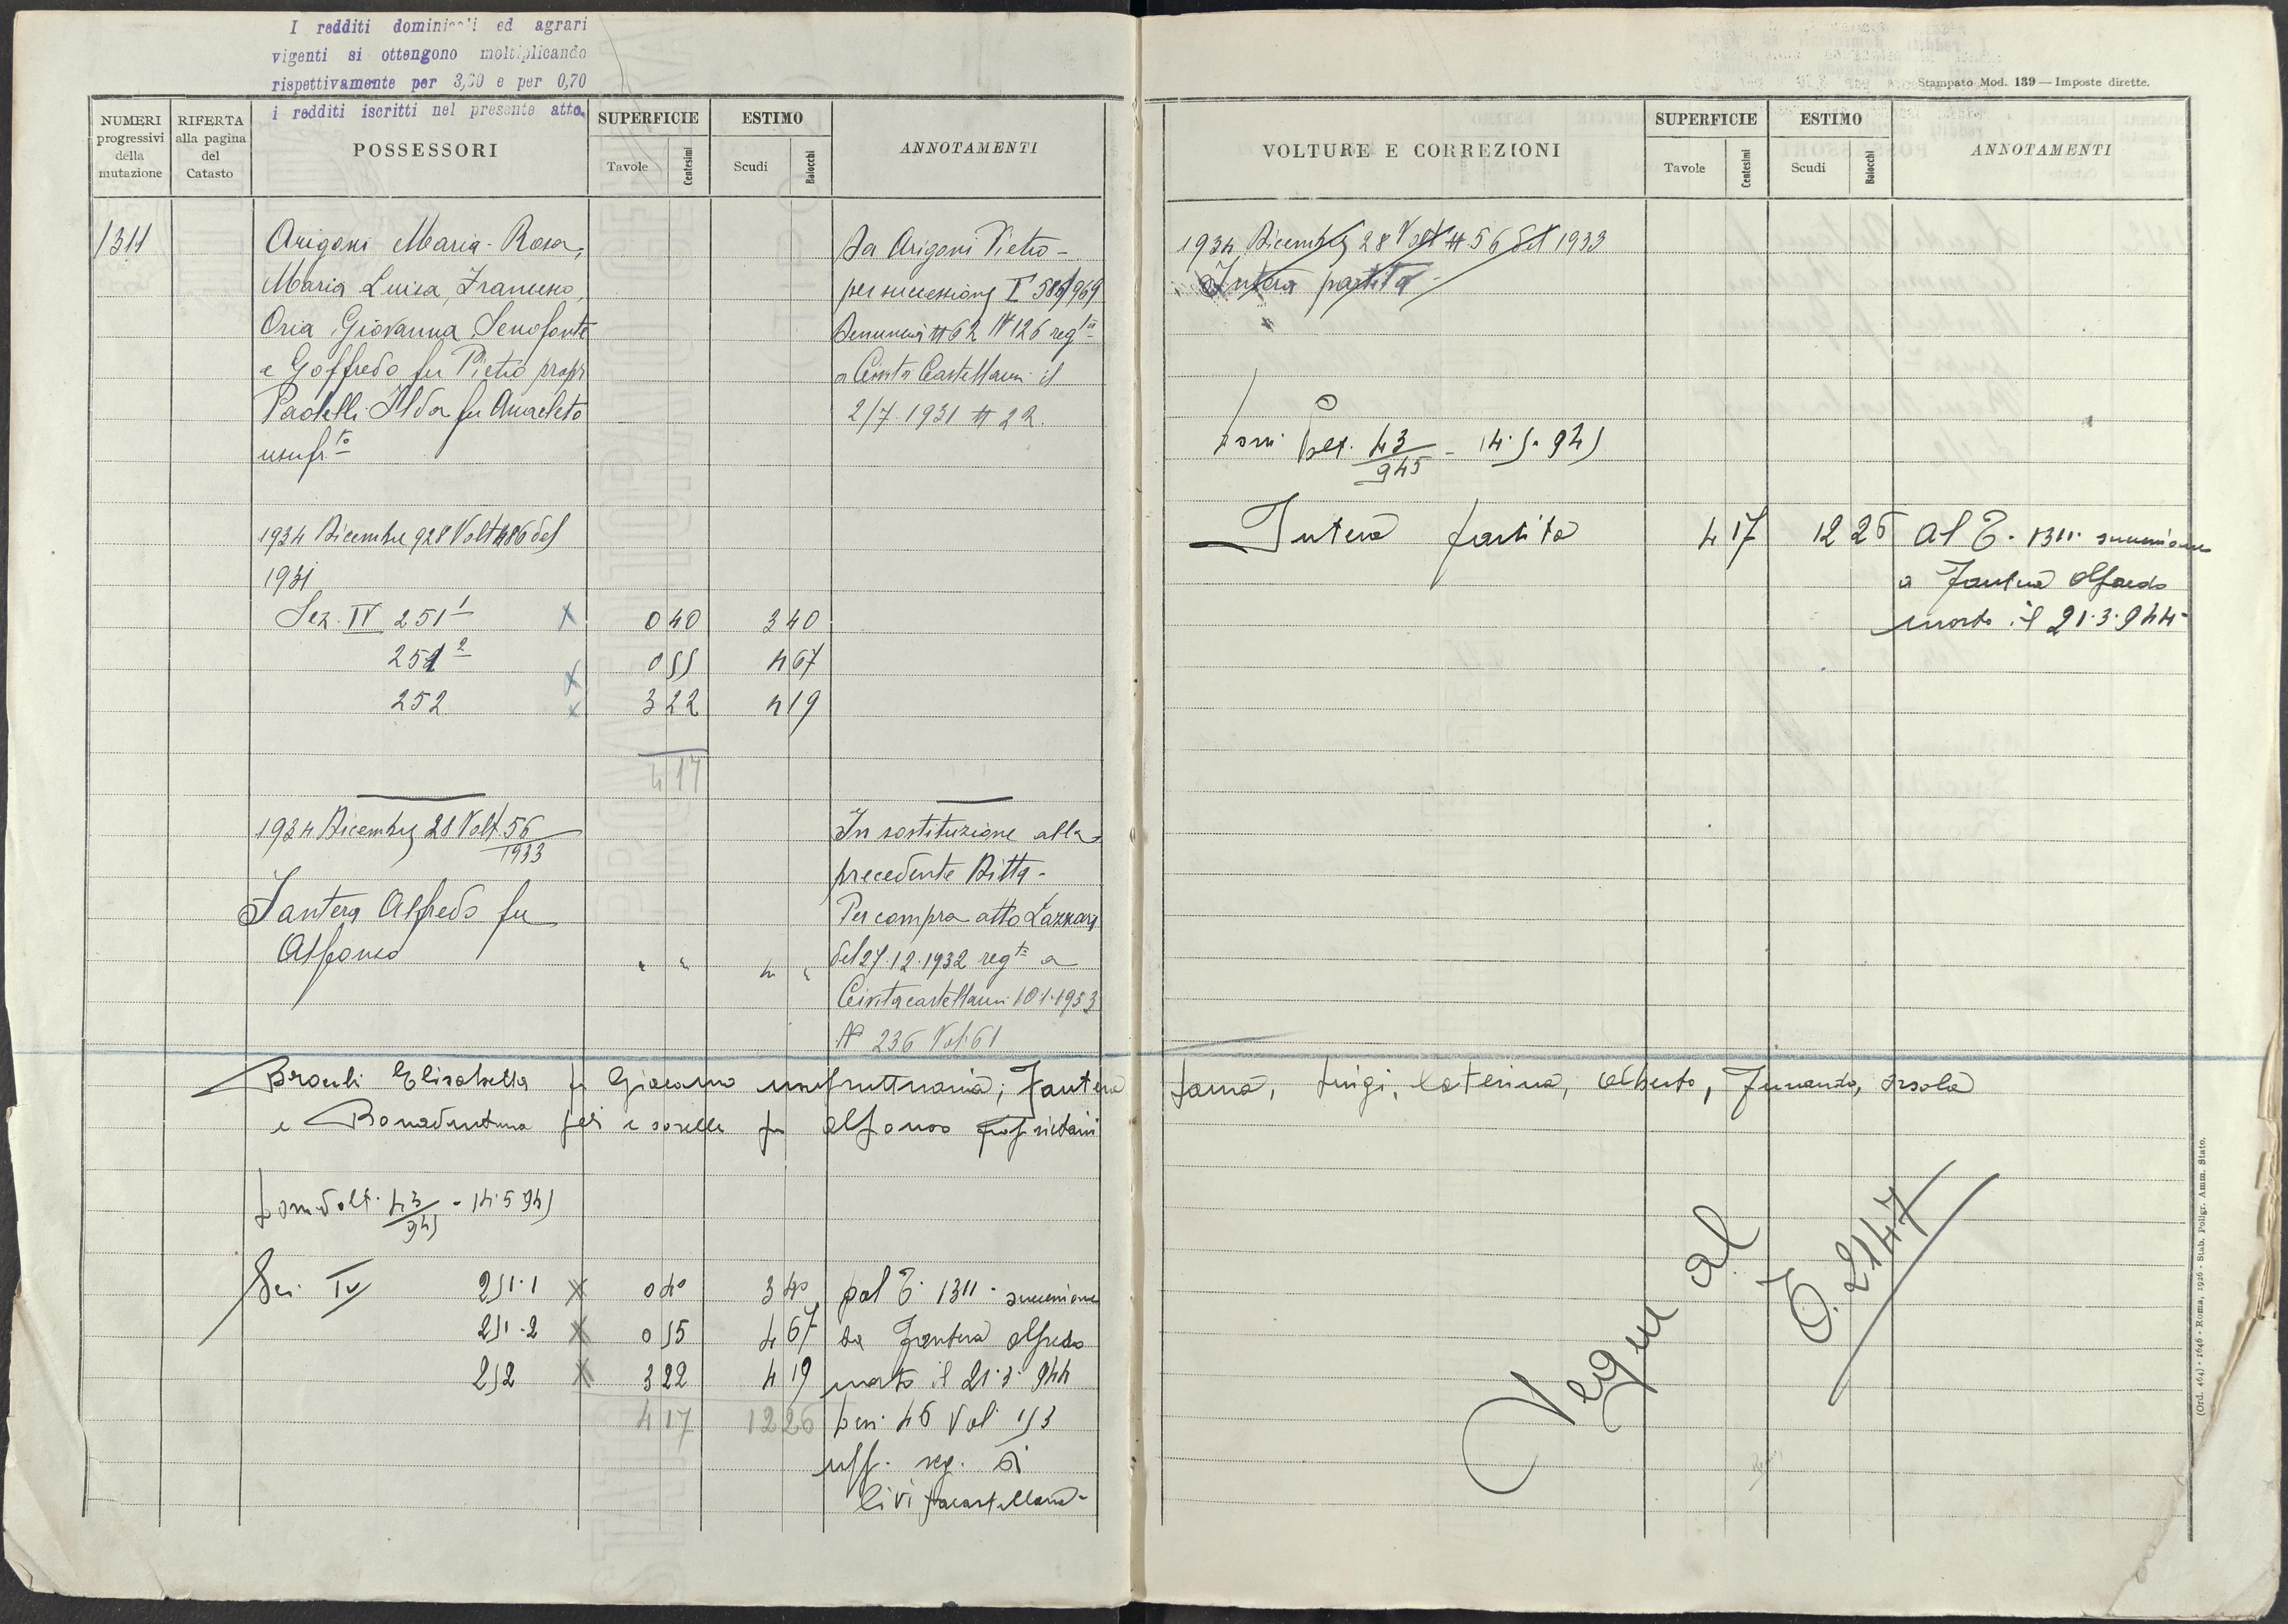 I redditi dominicali ed agrari
vigenti si ottengono moltiplicando
rispettivamente per 3,30 e per 0,70
i redditi iscritti nel presente atto.
NUMERI progressivi della mutazione
RIFERTA alla pagina del Catasto
POSSESSORI
SUPERFICIE
Tavole Centesimi
ESTIMO
Scudi Baiocchi
ANNOTAMENTI
1311
Arigoni Maria-Rosa,
Maria Luisa, Francesco,
Oria Giovanna Senofonte
e Goffredo fu Pietro propr
Paolelli Ilda fu Anacleto
usufr.to
Da Arigoni Pietro -
per successione
Denuncia # 62 N 126 reg.ta
a Civita Castellana il
2/7.1931 # 22.
1934 Dicembre 28 Volt 486 del
1931
Sez. IV 251 1 0 40 3 40
251 2 0 55 4 67
252 3 22 4 19
4 17
1934 Dicembre 28 Volt 56
1933
Fantera Alfredo fu
Alfonso
In sostituzione alla
precedente Ditta -
Per compra atto Lazzari
del 27.12.1932 reg.to a
Civitacastellana 10.1.1933
N° 236 Vol. 61
Elisabetta fu Giacomo usufruttuaria; Fantera
e Bonaventura fli e sorelle fu Alfonso proprietari
Dom. Volt. 43/945 - 14.5.945
Sez. IV 251.1 0 40 3 40
251.2 0 55 4 67
252 3 22 4 19
4 17 12 26
dal C. 1311. successione
da Fantera Alfredo
morto il 21.3.944
Den. 46 Vol. 153
uff. reg. di
Civitacastellana -
Stampato Mod. 139 — Imposte dirette.
VOLTURE E CORREZIONI
SUPERFICIE
Tavole Centesimi
ESTIMO
Scudi Baiocchi
ANNOTAMENTI
1934 Dicembre 28 Volt # 56 del 1933
Intera partita -
43/945 - 14.5.945
Intera partita 4 17 12 26
Al C. 1311. successione
a Fantera Alfredo
morto il 21.3.944 -
Luigi, Caterina, Alberto, Fernando, Orsola
Segue al
C. 2147
(Ord. 464) - 1646 - Roma, 1926 - Stab. Poligr. Amm. Stato.